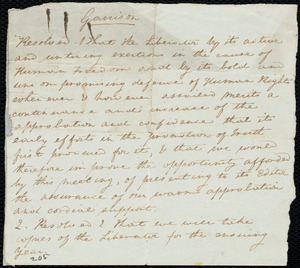 Garrison
Resolved That the Liberator by its active
and untiring exertions in the cause of
Human freedom and by its bold and
un compromising defence of Human Rights
when ever & how ever assailed merits a
continuance and increase of the
approbation and confidence that its
early efforts in the promotion of truth
first procured for it, & that we would
therefore improve the opportunity afforded
by this meeting, of presenting to its Editor
the assurance of our warm approbation
and cordial support.
2. Resolved That we will take
copies of the Liberator for the ensuing
Year
205